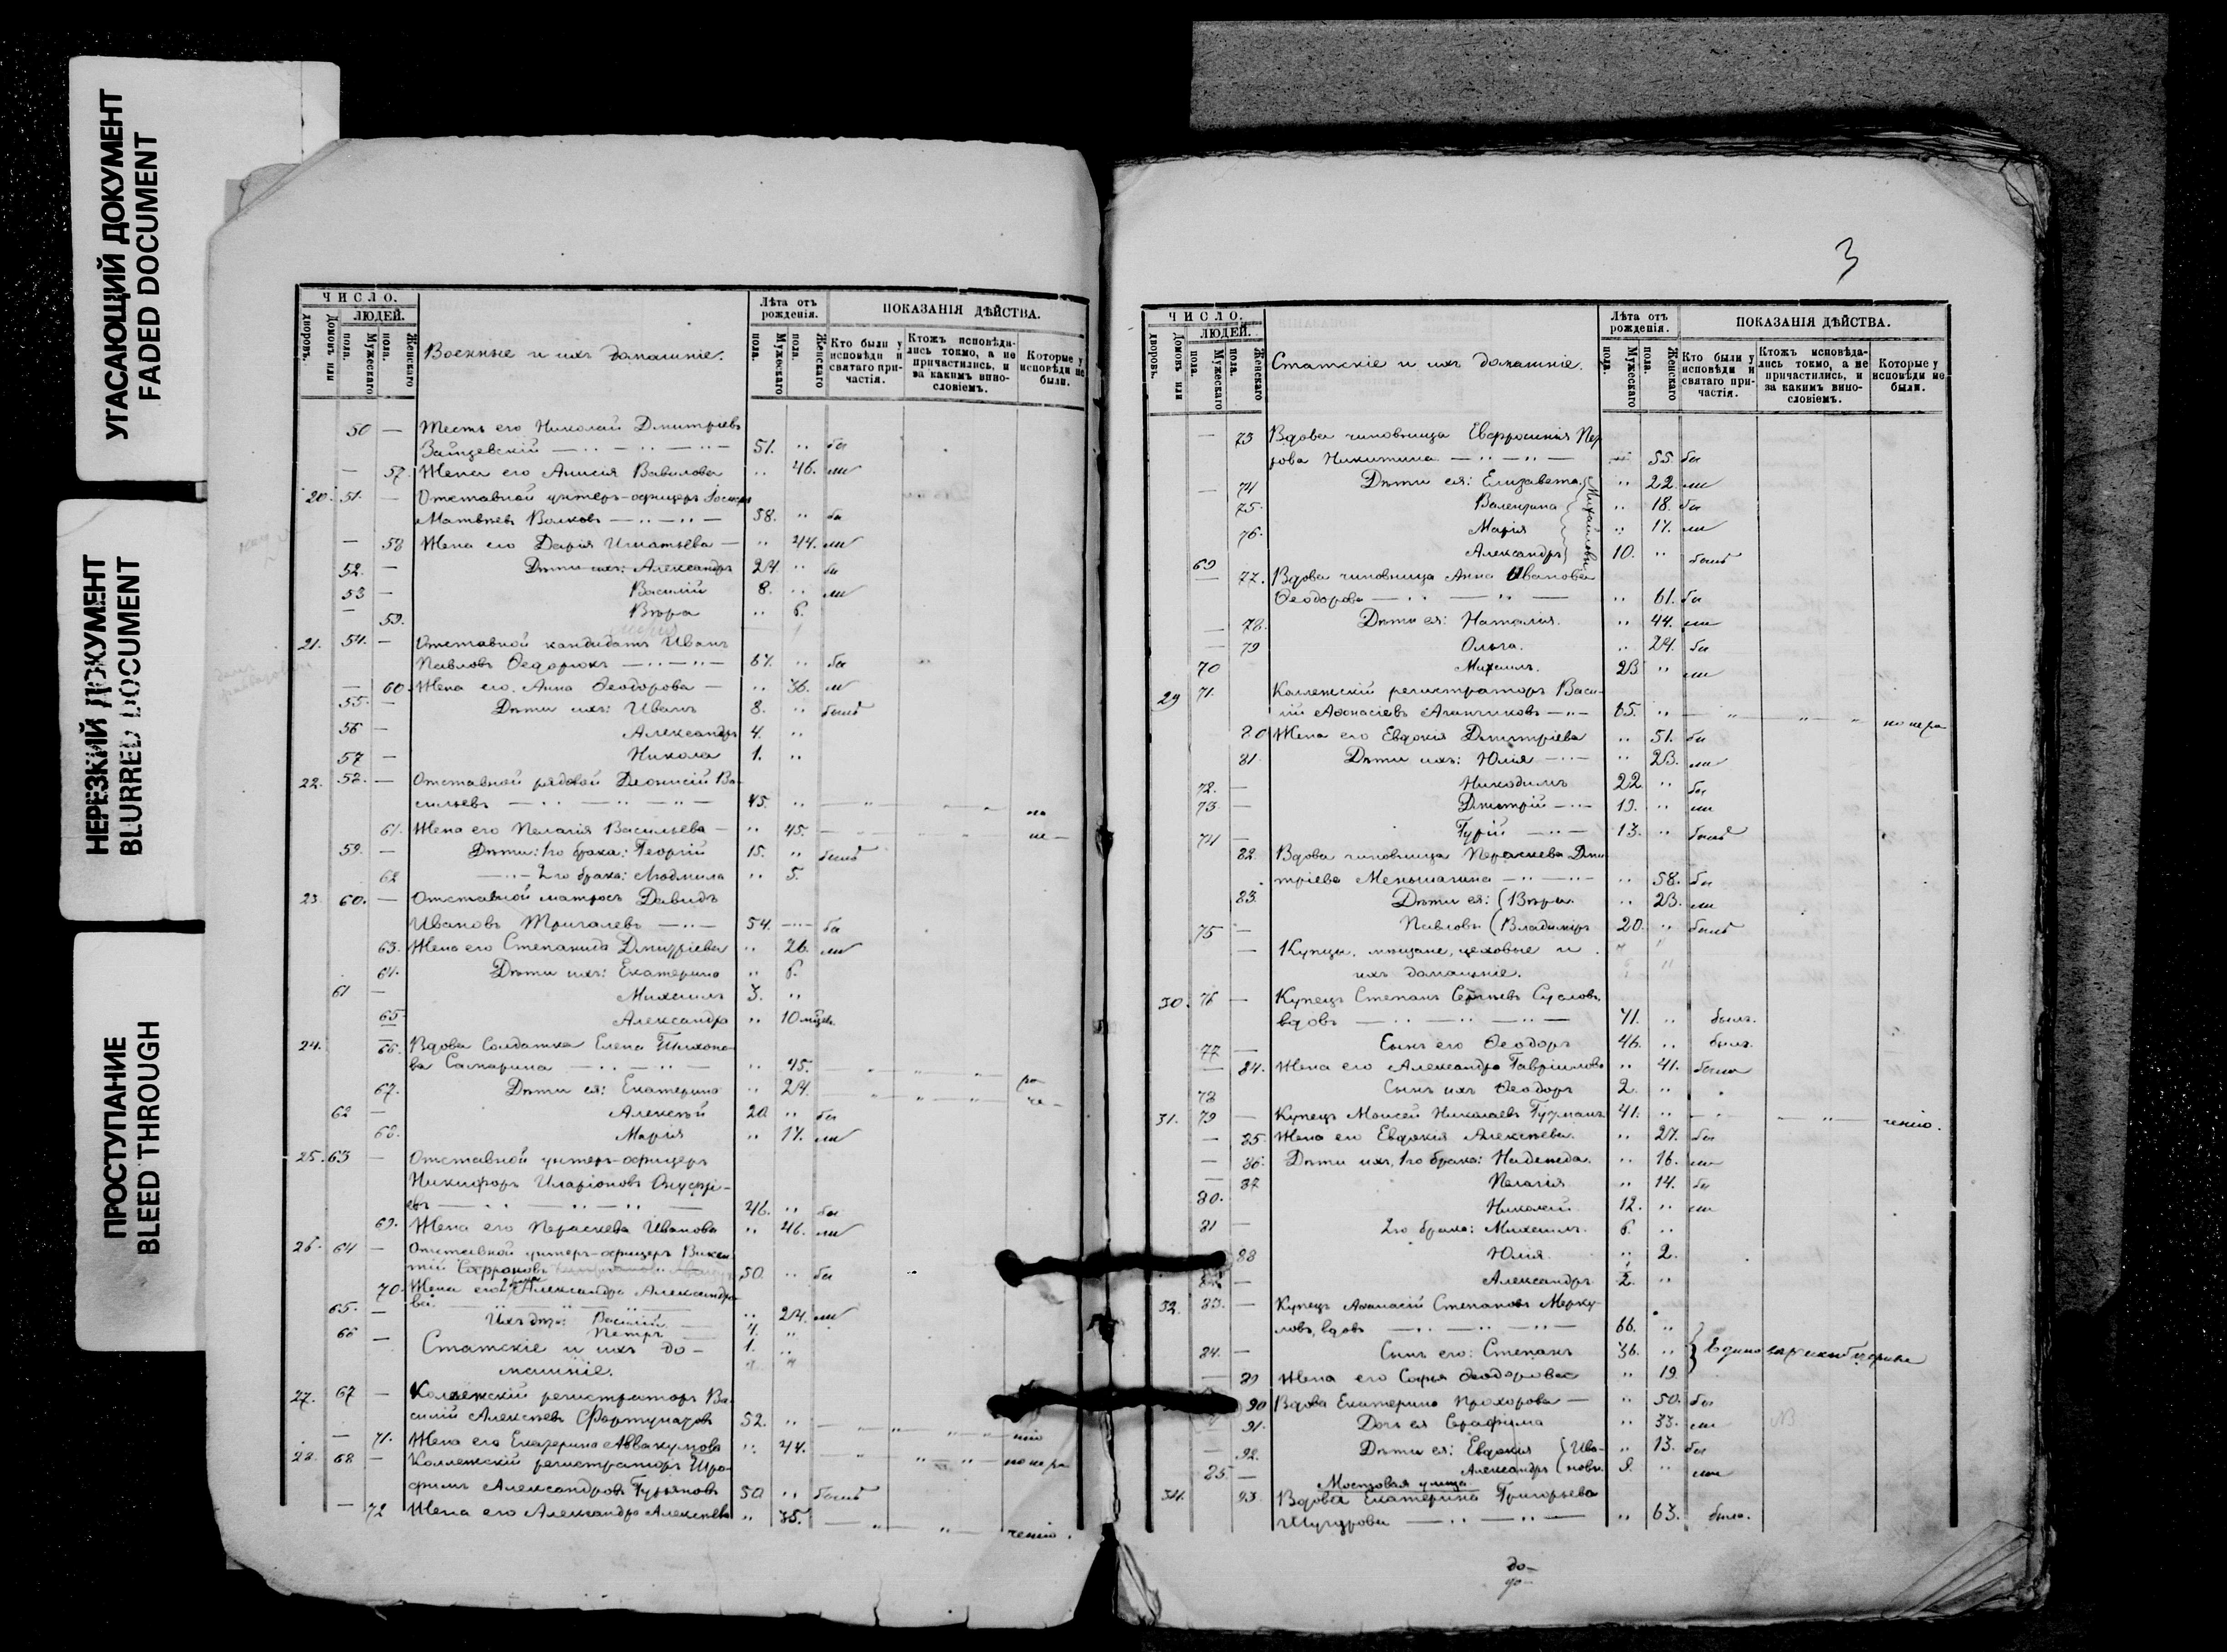 УГАСАЮЩИЙ ДОКУМЕНТ
FADED DOCUMENT
НЕРЕЗКИЙ ДОКУМЕНТ
BLURRED DOCUMENT
ПРОСТУПАНИЕ
BLEED THROUGH
ЧИСЛО.
ЛЮДЕЙ.
Домовъ или дворовъ.
Мужескаго пола.
Женскаго пола.
Военные и ихъ домашніе.
Лѣта отъ рожденія.
Мужескаго пола.
Женскаго пола.
ПОКАЗАНІЯ ДѢЙСТВА.
Кто были у исповѣди и святаго причастія.
Ктожъ исповѣдались токмо, а не причастились, и за какимъ винословіемъ.
Которые у исповѣди не были.
50 — Тесть его Николай Дмитріевъ
Зайцевскій 51. бы
— 57. Жена его Анисія Вавилова 46. ли
20. 51. — Отставной унтеръ-офицеръ Іосифъ
Матвѣевъ Волковъ 58. бы
— 58 Жена его Дарія Игнатьева 44. ли
52. — Дѣти ихъ: Александръ 24 бы
53 — Василій 8. ли
— 59. Вѣра 6.
21. 54. — Отставной кандидатъ Иванъ
Павловъ Ѳедорюкъ 67. бы
— 60. Жена его Анна Ѳеодорова 36. ли
55. — Дѣти ихъ: Иванъ 8. былъ
56 — Александръ 4.
57 — Никола 1.
22. 58. — Отставной рядовой Діонисій Ва-
сильевъ 45.
61. Жена его Пелагія Васильева 45.
59. — Дѣти: 1го брака: Георгій 15. былъ
62 2го брака: Людмила 5.
23. 60. — Отставной матросъ Давидъ
Ивановъ Тригалевъ 54. бы
63. Жена его Степанида Дмитріева 26. ли
64. Дѣти ихъ: Екатерина 6.
61 — Михаилъ 3.
65 Александра 10 мѣсяц.
24. 66. Вдова Солдатка Елена Тихоно-
ва Самарина 45.
67. Дѣти ея: Екатерина 24.
62 — Алексѣй 20 бы
68. Марія 17. ли
25. 63 — Отставной унтеръ-офицеръ
Никифоръ Иларіоновъ Онуфрі-
евъ 46. бы
69. Жена его Параскева Иванова 46. ли
26. 64 — Отставной унтеръ-офицеръ Викен-
тій Софроновъ 50. бы
70. Жена его Александра Александро-
ва 24. ли
65. — Ихъ дѣти: Василій 4.
66 — Петръ 1.
Статскіе и ихъ до-
машніе.
27. 67 — Коллежскій регистраторъ Ва-
силій Алексѣевъ Фортунатовъ 52.
— 71. Жена его Екатерина Аввакумова 44.
28. 68 — Коллежскій регистраторъ Тро-
фимъ Александровъ Гурьяновъ 50 былъ
— 72 Жена его Александра Алексѣева 35. ченію.
3
ЧИСЛО.
ЛЮДЕЙ.
Домовъ или дворовъ.
Мужескаго пола.
Женскаго пола.
Статскіе и ихъ домашніе.
Лѣта отъ рожденія.
Мужескаго пола.
Женскаго пола.
ПОКАЗАНІЯ ДѢЙСТВА.
Кто были у исповѣди и святаго причастія.
Ктожъ исповѣдались токмо, а не причастились, и за какимъ винословіемъ.
Которые у исповѣди не были.
— 73 Вдова чиновница Евфросинія Пет-
рова Никитина 55. бы
— 74 Дѣти ея: Елизавета 22. ли
75. Валентина 18. бы
76. Марія 17. ли
Михайловы
69 Александръ 10. былъ
— 77. Вдова чиновница Анна Иванова
Ѳеодорова 61. бы
— 78. Дѣти ея: Наталія. 44. ли
— 79 Ольга. 24. бы
70 Михаилъ. 23 ли
29 71. Коллежскій регистраторъ Васи-
лій Аѳонасіевъ Аганчиковъ 65. по нера
80 Жена его Евдокія Дмитріева 51. бы
81 Дѣти ихъ: Юлія 23. ли
72. — Никодимъ 22 бы
73. — Дмитрій 19. ли
74 — Гурій 13. былъ
82. Вдова чиновница Параскева Дми-
тріева Меньшагина 58. бы
83. Дѣти ея: Вѣра 23. ли
75 — Павловы Владиміръ 20. былъ
— Купцы, мѣщане, цеховые и
ихъ домашніе.
30. 76 — Купецъ Степанъ Сергѣевъ Сусловъ,
вдовъ 71. былъ.
77 — Сынъ его Ѳеодоръ 46. былъ.
— 84. Жена его Александра Гавріилова 41. была
78 Сынъ ихъ Ѳеодоръ 2.
31. 79 — Купецъ Моисей Николаевъ Гурманъ 41. ченію.
— 85. Жена его Евдокія Алексѣева. 27. бы
— 86. Дѣти ихъ, 1го брака: Надежда. 16. ли
— 87 Пелагія 14. бы
80. Николай 12. ли
81 — 2го брака: Михаилъ. 6.
88 Юлія. 2.
82 — Александръ 2.
32. 83. — Купецъ Аѳанасій Степановъ Мерку-
ловъ, вдовъ 66.
84. — Сынъ его: Степанъ 36.
— 89 Жена его Софья Ѳеодорова 19.
90 Вдова Екатерина Прохорова 50. бы
91. Дочь ея Серафима 33. ли
— 92. Дѣти ея: Евдокія Ива- 13. бы
85. — Александръ новы 9. ли
Мостовая улица
34. 93. Вдова Екатерина Григорьева
Шугурова 63. была.
до-